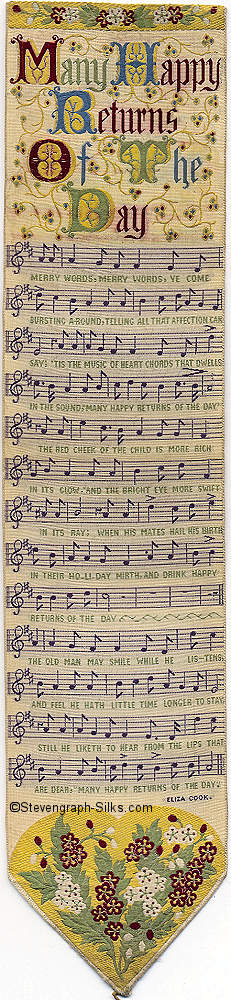 Many Happy
Returns
Of The
Day
MERRY WORDS, MERRY WORDS, YE COME
BURSTING AROUND, TELLING ALL THAT AFFECTION CAN
SAY; 'TIS THE MUSIC OF HEART CHORDS THAT DWELLS
IN THE SOUND; "MANY HAPPY RETURNS OF THE DAY."
THE RED CHEEK OF THE CHILD IS MORE RICH
IN ITS GLOW, AND THE BRIGHT EYE MORE SWIFT
IN ITS RAY; WHEN HIS MATES HAIL HIS BIRTH
IN THEIR HO-LI-DAY MIRTH, AND DRINK HAPPY
RETURNS OF THE DAY
THE OLD MAN MAY SMILE WHILE HE LIS-TENS,
AND FEEL HE HATH LITTLE TIME LONGER TO STAY,
STILL HE LIKETH TO HEAR FROM THE LIPS THAT
ARE DEAR, "MANY HAPPY RETURNS OF THE DAY."
ELIZA COOK.
©Stevengraph-Silks.com